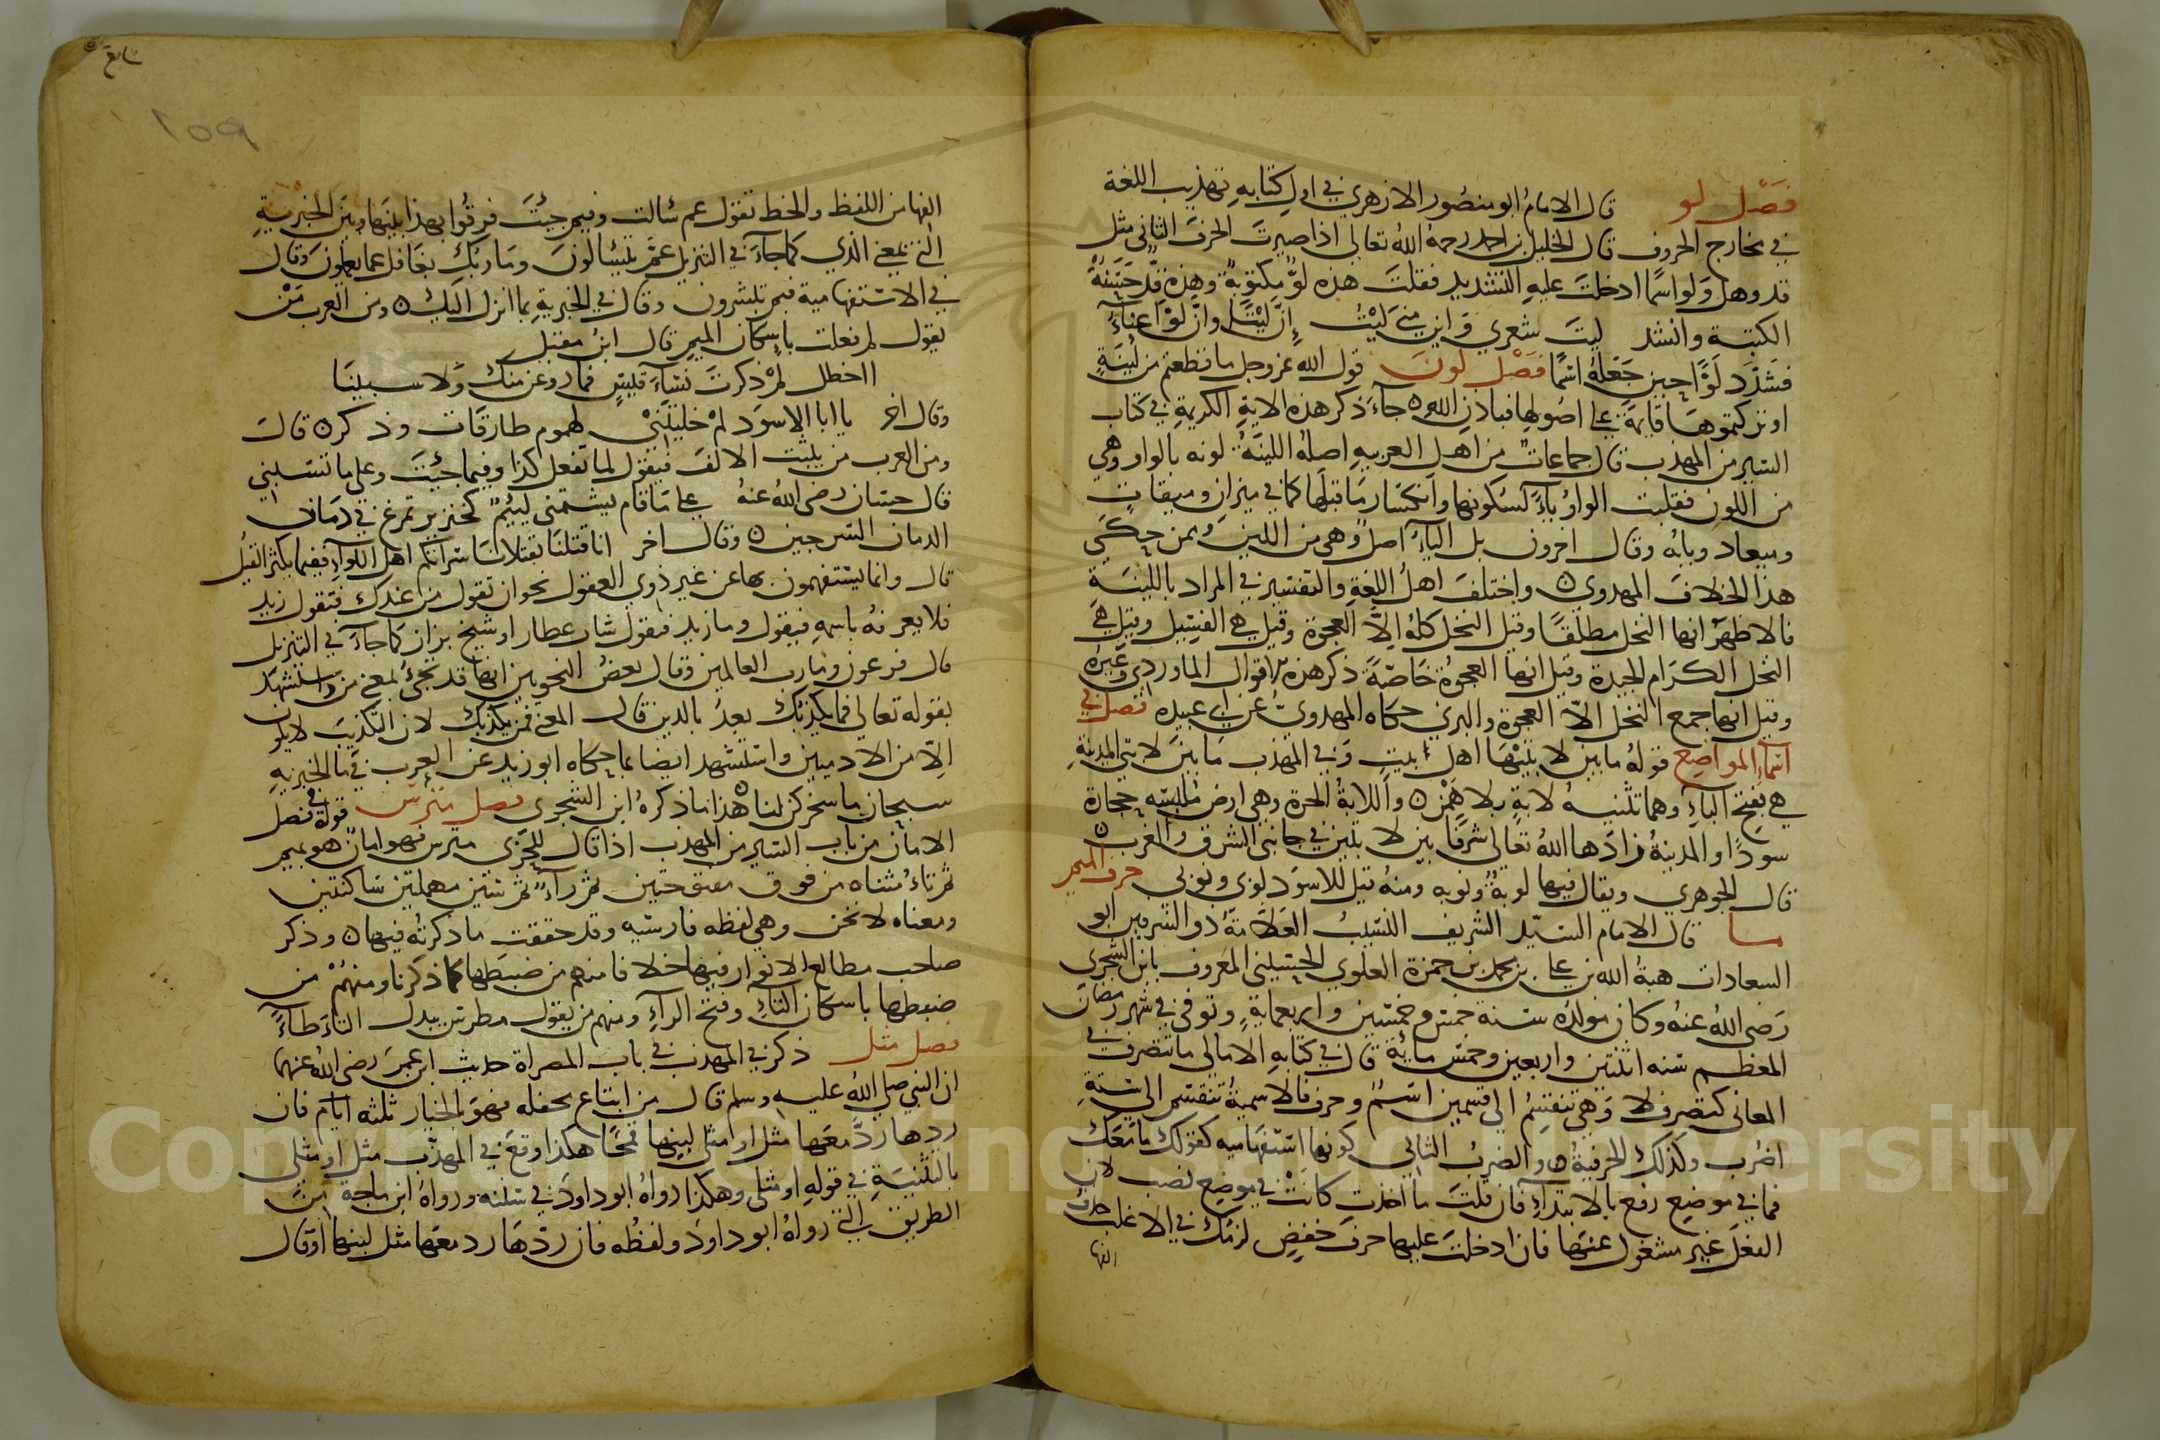 فصل لو قال الامام ابو منصور الازهري في اول كتابه تهذيب اللغة
في مخارج الحروف قال الخليل بن احمد رحمه الله تعالى اذا صيرت الحرف الثاني مثل
قد وهل ولو اسما ادخلت عليه التشديد فقلت هذه لو مكتوبة وهذه قد حسنة
الكتبة وانشد ليت شعري واين مني ليت إن ليتا وان لوا عناء
فشدد لوا حين جعله اسما فصل لون قول الله عز وجل ما قطعتم من لينة
او تركتموها قايمة على اصولها فباذن الله جاء ذكر هذه الاية الكريمة في كتاب
السير من المهذب قال جماعات من اهل العربيه اصله اللينة لونه بالواو وهي
من اللون فقلبت الواو ياء لسكونها وانكسار ما قبلها كما في ميزان وميقات
وميعاد وبابه وقال اخرون بل الياء اصل وهي من اللين وممن حكى
هذا الخلاف المهدوي واختلف اهل اللغة والتفسير في المراد باللينة
فالاظهر انها النخل مطلقا وقيل النخل كله الا العجوة وقيل هي الفسيل وقيل هي
النخل الكرام الجيدة وقيل انها العجوة خاصة ذكر هذه الاقوال الماوردي وغيره
وقيل انها جمع النخل الا العجوة والبرني حكاه المهدوي عن ابي عبيده فصل في
اسماء المواضع قوله ما بين لابتيها اهل بيت وفي المهذب ما بين لابتي المدينة
هي بفتح الباء وهما تثنيه لابة بلا همز واللابة الحرة وهي ارض ملبسه حجارة
سودا والمدينة زادها الله تعالى شرفا بين لابتين في جانبي الشرق والغرب
قال الجوهري ويقال فيها لوبة ونوبه ومنه قيل للاسود لوبي ونوبي حرف الميم
ما قال الامام السيد الشريف النسيب العلامة ذو الشرفين ابو
السعادات هبة الله بن علي بن محمد بن حمزة العلوي الحسيني المعروف بابن الشجري
رضي الله عنه وكان مولده سنة خمس وخمسين واربعماية وتوفي في شهر رمضان
المعظم سنه اثنتين واربعين وخمس مائة قال في كتابه الامالي ما تتصرف في
المعاني كتصرف لا وهي تنقسم الى قسمين اسم وحرف فالاسمية تنقسم الى ستة
اضرب وكذلك الحرفية والضرب الثاني كونها استفهاميه كقولك ما معك
فما في موضع رفع بالابتداء فان قلت ما اخذت كانت في موضع نصب لان
الفعل غير مشغول عنها فان ادخلت عليها حرف خفض لزمك في الاغلب حذف
الفها
الفها من اللفظ والخط تقول عم سألت وفيم جئت فرقوا بهذا بينها وبين الخبرية
التي بمعنى الذي كما جاء في التنزيل عم يتسالون وما ربك بغافل عما يعملون وقال
في الاستفهامية فبم تبشرون وقال في الخبرية بما انزل اليك ومن العرب من
يقول لم فعلت باسكان الميم قال ابن مقبل
ااخطل لم ذكرت نساء قيس فما روعن منك ولا سبينا
وقال اخر يا ابا الاسود لم خليتني لهموم طارقات وذكر قال
ومن العرب من يثبت الالف فيقول لما تفعل كذا وفيما جئت وعلى ما تسلني
قال حسان رضي الله عنه على ما قام يشتمني لئيم كخنزير تمرغ في دمان
الدمان السرجين وقال اخر انا قتلنا بقتلانا سراتكم اهل اللواء ففيما يكثر القيل
قال وانما يستفهمون بها عن غير ذوي العقول نحو ان تقول من عندك فتقول زيد
فلا يعرفه باسمه فيقول وما زيد فتقول شاب عطار او شيخ بزاز كما جاء في التنزيل
قال فرعون وما رب العالمين وقال بعض النحويين انها قد تجيء بمعنى من واستشهد
بقوله تعالى فما يكذبك بعد بالدين قال المعنى فمن يكذبك لان التكذيب لا يكون
الا من الادميين واستشهد ايضا بما حكاه ابو زيد عن العرب في ما الخبريه
سبحان ما سخركن لنا هذا ما ذكره ابن الشجري فصل مترس قوله في فصل
الامان من باب السير من المهذب اذا قال للحربي مترس فهو امان هو بميم
ثم تاء مثناه من فوق مفتوحتين ثم راء ثم سين مهملتين ساكنتين
ومعناه لا تخف وهي لفظه فارسيه وقد حققت ما ذكرته فيها وذكر
صاحب مطالع الانوار فيها خلافا منهم من ضبطها كما ذكرنا ومنهم من
ضبطها باسكان التاء وفتح الراء ومنهم من يقول مطرس يبدل التاء طاء
فصل مثل ذكر في المهذب في باب المصراة حديث ابن عمر رضي الله عنهما
ان النبي صلى الله عليه وسلم قال من ابتاع محفله فهو بالخيار ثلثه ايام فان
ردها رد معها مثل او مثلي لبنها قمحا هكذا وقع في المهذب مثل او مثلي
بالتثنية في قوله او مثلي وهكذا رواه ابو داود في سننه ورواه ابن ماجه من
الطريق التي رواه ابو داود ولفظه فان ردها رد معها مثل لبنها او قال
Copyright © King Saud University